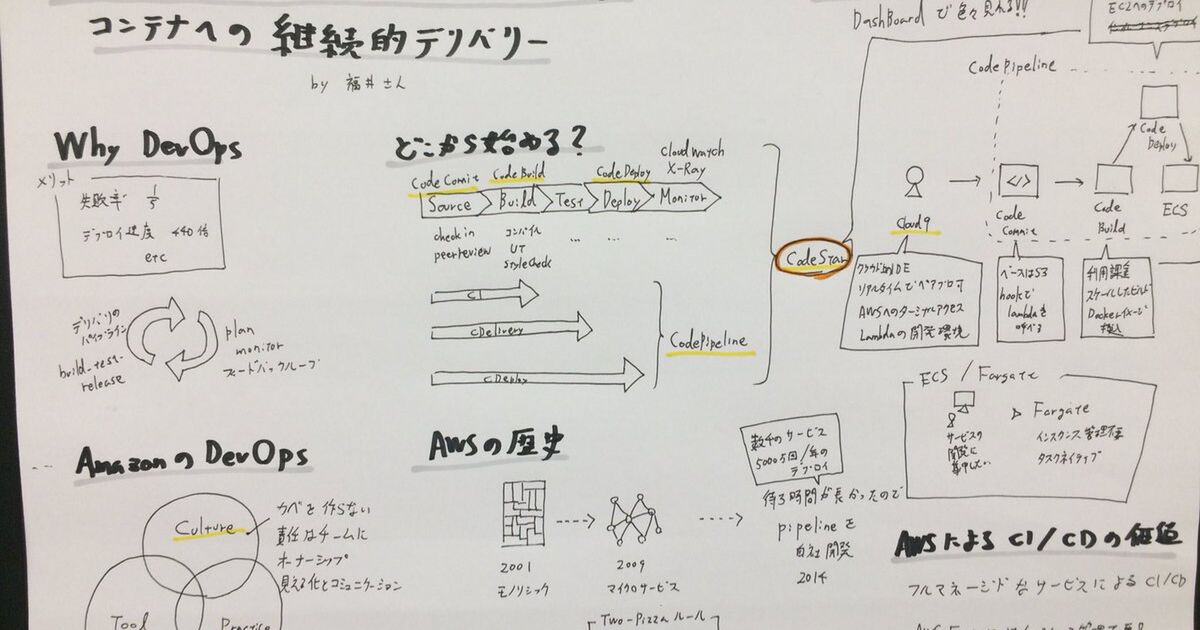 コンテナへの 継続的デリバリー
by 福井さん
Why DevOps
メリット
失敗率 1/5
デプロイ速度 440倍
etc
デリバリの
パイプライン
build-test-
release
plan
monitor
フィードバックループ
AmazonのDevOps
Culture
カベを作らない
責任はチームに
オーナーシップ
見える化とコミュニケーション
Tool
Practice
どこから始める?
CodeComit
CodeBuild
CodeDeploy
CloudWatch
X-Ray
Source
Build
Test
Deploy
Monitor
check in
peer review
コンパイル
UT
StyleCheck
...
...
...
CI
CDelivery
CDeploy
CodePipeline
CodeStar
AWSの歴史
2001
モノリシック
2009
マイクロサービス
Two-Pizzaルール
数千のサービス
5000万回/年の
デプロイ
待ち時間が長かったので
pipelineを
自社開発
2014
DashBoard で色々見れる!!
EC2へのデプロイ
CodePipeline
Cloud9
</>
Code
Commit
Code
Build
Code
Deploy
ECS
クラウド型IDE
リアルタイムでペアプロ可
AWSへのターミナルアクセス
Lambdaの開発環境
ベースはS3
hookで
lambdaを
呼べる
利用課金
スケールしたビルド
Dockerイメージ
ECS / Fargate
サービスの
開発に
集中したい
▷ Fargate
インスタンス管理不要
タスクネイティブ
AWSによるCI/CDの価値
フルマネージドなサービスによるCI/CD